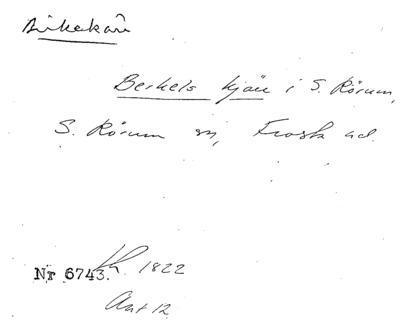 Birkekärr
Berkels kjär i S. Rörum,
S. Rörum sn, Frosta hd.
Nr 6743. 1822
Akt 12